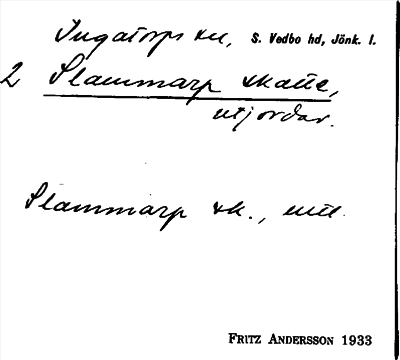 Ingatorps sn, S. Vedbo hd, Jönk. l.
2 Slammarp skatte,
utjordar.
Slammarp sk., mtl.
FRITZ ANDERSSON 1933